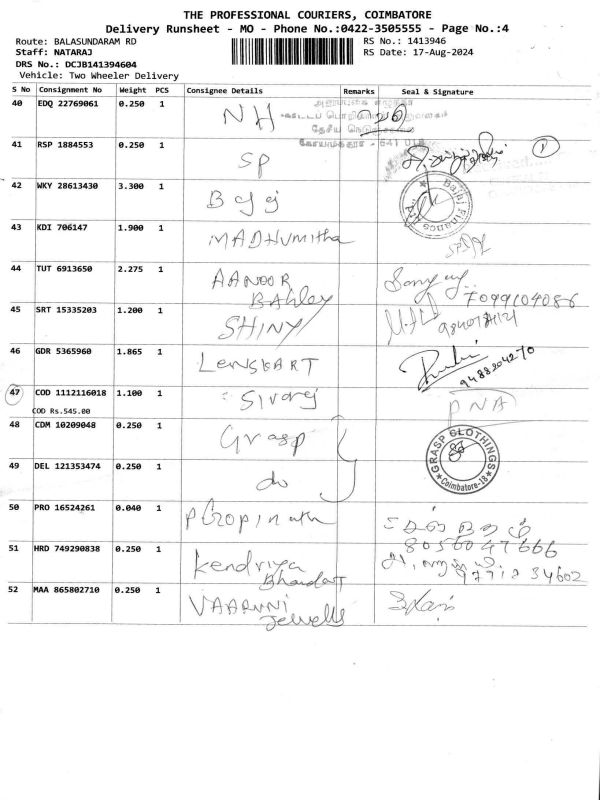 THE PROFESSIONAL COURIERS, COIMBATORE
Delivery Runsheet - MO - Phone No.:0422-3505555 - Page No.:4
Route: BALASUNDARAM RD
RS No.: 1413946
Staff: NATARAJ
RS Date: 17-Aug-2024
DRS No.: DCJB141394604
Vehicle: Two Wheeler Delivery
S No Consignment No Weight PCS Consignee Details Remarks Seal & Signature
40 EDQ 22769061 0.250 1 NH
தேசிய
641 018
41 RSP 1884553 0.250 1 SP
42 WKY 28613430 3.300 1
Bajaj Finance
43 KDI 706147 1.900 1 MADHUMitha
44 TUT 6913650 2.275 1 AANOOR
7099104086
45 SRT 15335203 1.200 1 SHINY
46 GDR 5365960 1.865 1 LENSKART
9488204270
47 COD 1112116018 1.100 1 Sivaraj
COD Rs.545.00
DNA
48 CDM 10209048 0.250 1 Grasp
GRASP CLOTHINGS
Coimbatore-18
49 DEL 121353474 0.250 1 do
50 PRO 16524261 0.040 1 P Gopinath
8056047666
51 HRD 749290838 0.250 1 Kendriya
Bhandar
52 MAA 865802710 0.250 1 VAARUNI
Jewells